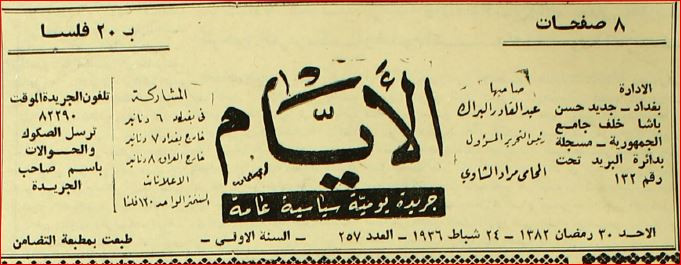 ٨ صفحات
بـ ٢٠ فلسا
الأيام
جريدة يومية سياسية عامة
الادارة
بغداد ــ جديد حسن
باشا خلف جامع
الجمهورية ــ مسجلة
بدائرة البريد تحت
رقم ١٣٢
صاحبها
عبد القادر البراك
رئيس التحرير المسؤول
المحامي مراد الشاوي
المشاركة
في بغداد ٦ دنانير
خارج بغداد ٧ دنانير
خارج العراق ٨ دنانير
الاعلانات
السنتمتر الواحد ١٢٠ فلسا
تلفون الجريدة الموقت
٨٢٢٩٠
ترسل الصكوك
والحوالات
باسم صاحب
الجريدة
الاحد ٣٠ رمضان ١٣٨٢ ــ ٢٤ شباط ١٩٣٦ ــ العدد ٢٥٧ ــ السنة الاولى ــ طبعت بمطبعة التضامن